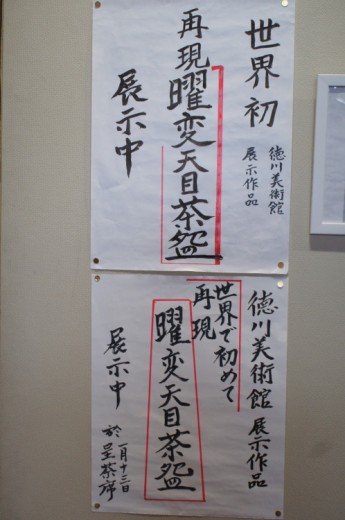 世界初
徳川美術館
展示作品
再現曜変天目茶盌
展示中
徳川美術館 展示作品
世界で初めて
再現
曜変天目茶盌
展示中
一月十三日
於 呈茶席